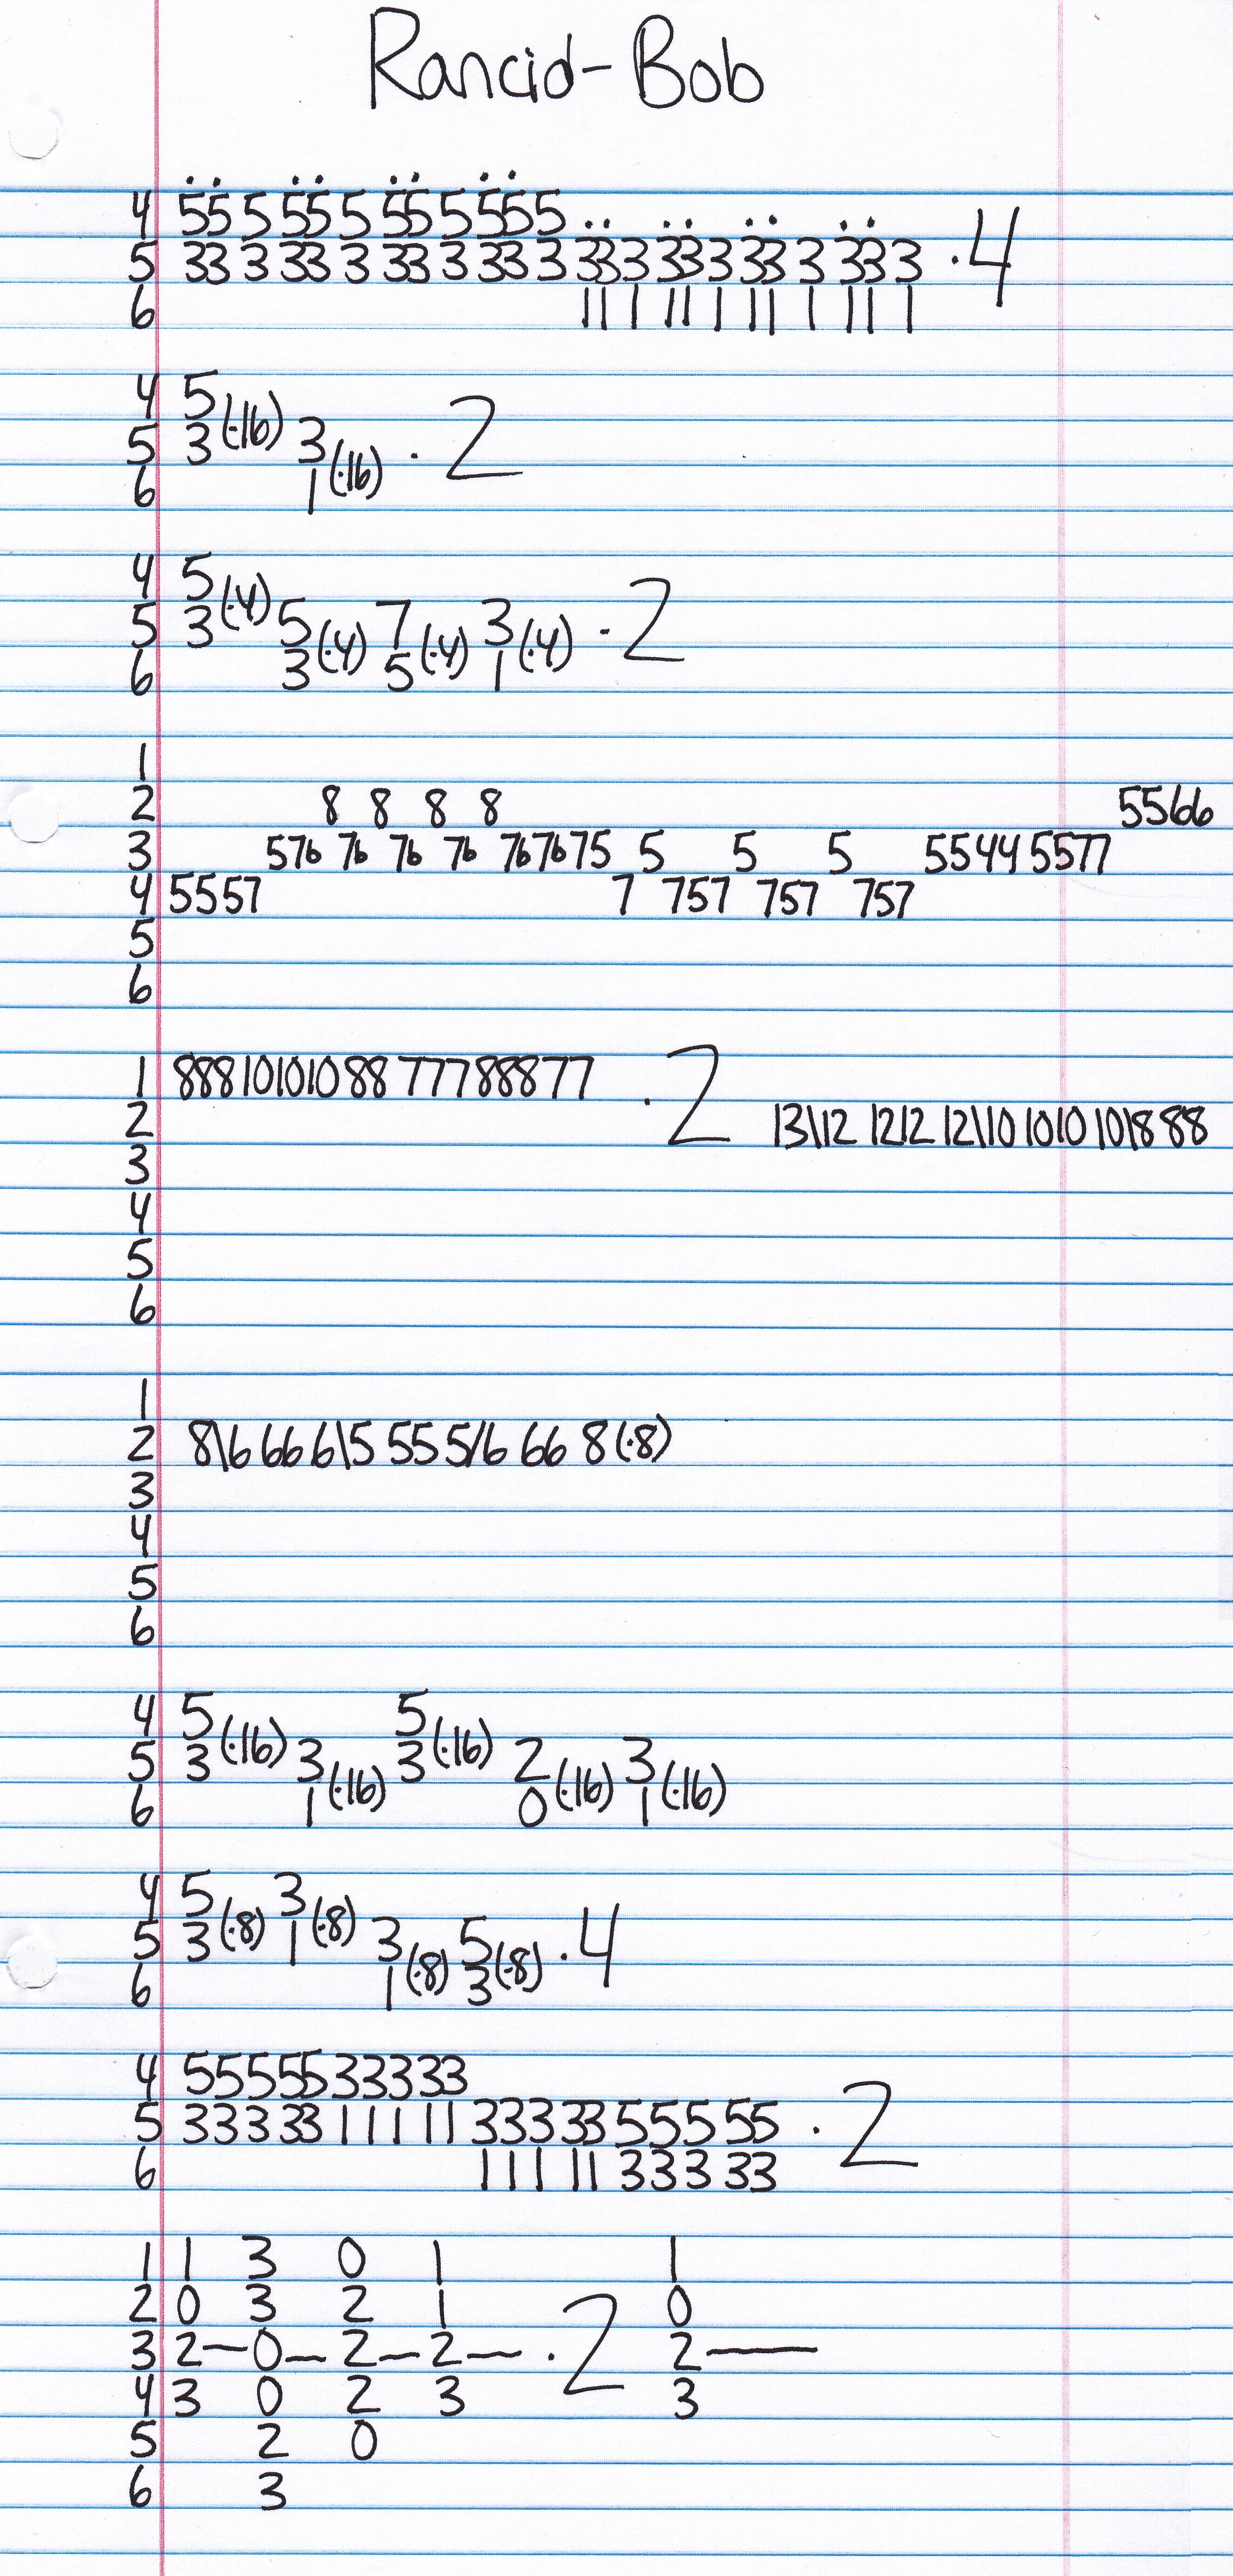 Rancid-Bob
4 55 5 55 5 55 5 555
5 33 3 33 3 33 3 33 3 33 3 33 3 33 3 33 3 ·4
6 11 1 11 1 11 1 11 1
4 5
5 3 (·16) 3 · 2
6 1 (·16)
4 5
5 3 (·4) 5 7 3 · 2
6 3 (·4) 5 (·4) 1 (·4)
1
2 8 8 8 8 5566
3 576 76 76 76 767675 5 5 5 5544 5577
4 5557 7 757 757 757
5
6
1 888101010 88 77788877 · 2
2 13\12 1212 12\10 1010 10\8 88
3
4
5
6
1
2 8\6 66 6\5 55 5/6 66 8 (·8)
3
4
5
6
4 5 5
5 3 (·16) 3 3 (·16) 2 3
6 1 (·16) 0 (·16) 1 (·16)
4 5 3
5 3 (·8) 1 (·8) 3 5 · 4
6 1 (·8) 3 (·8)
4 5555533333
5 33333 11111 3333355555 · 2
6 11111 33333
1 1 3 0 1 1
2 0 3 2 1 0
3 2—0—2—2— · 2 2—
4 3 0 2 3 3
5 2 0
6 3